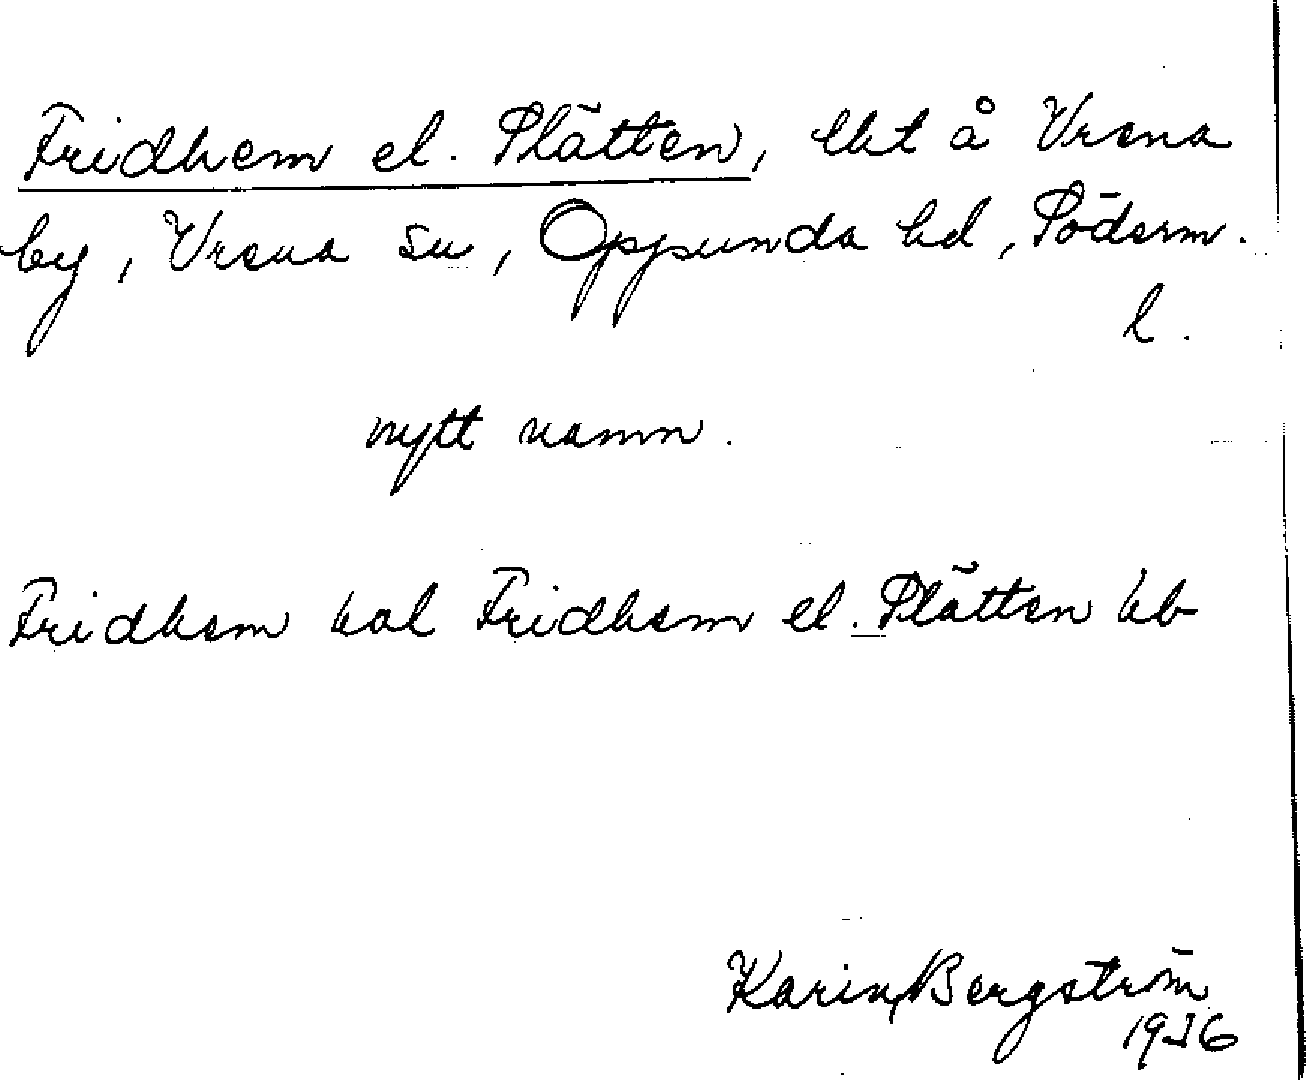 Fridhem el. Plätten, lht å Vrena
by, Vrena sn, Oppunda hd, Söderm.
l.
nytt namn.
Fridhem hal Fridhem el. Plätten hb
Karin Bergström
1936